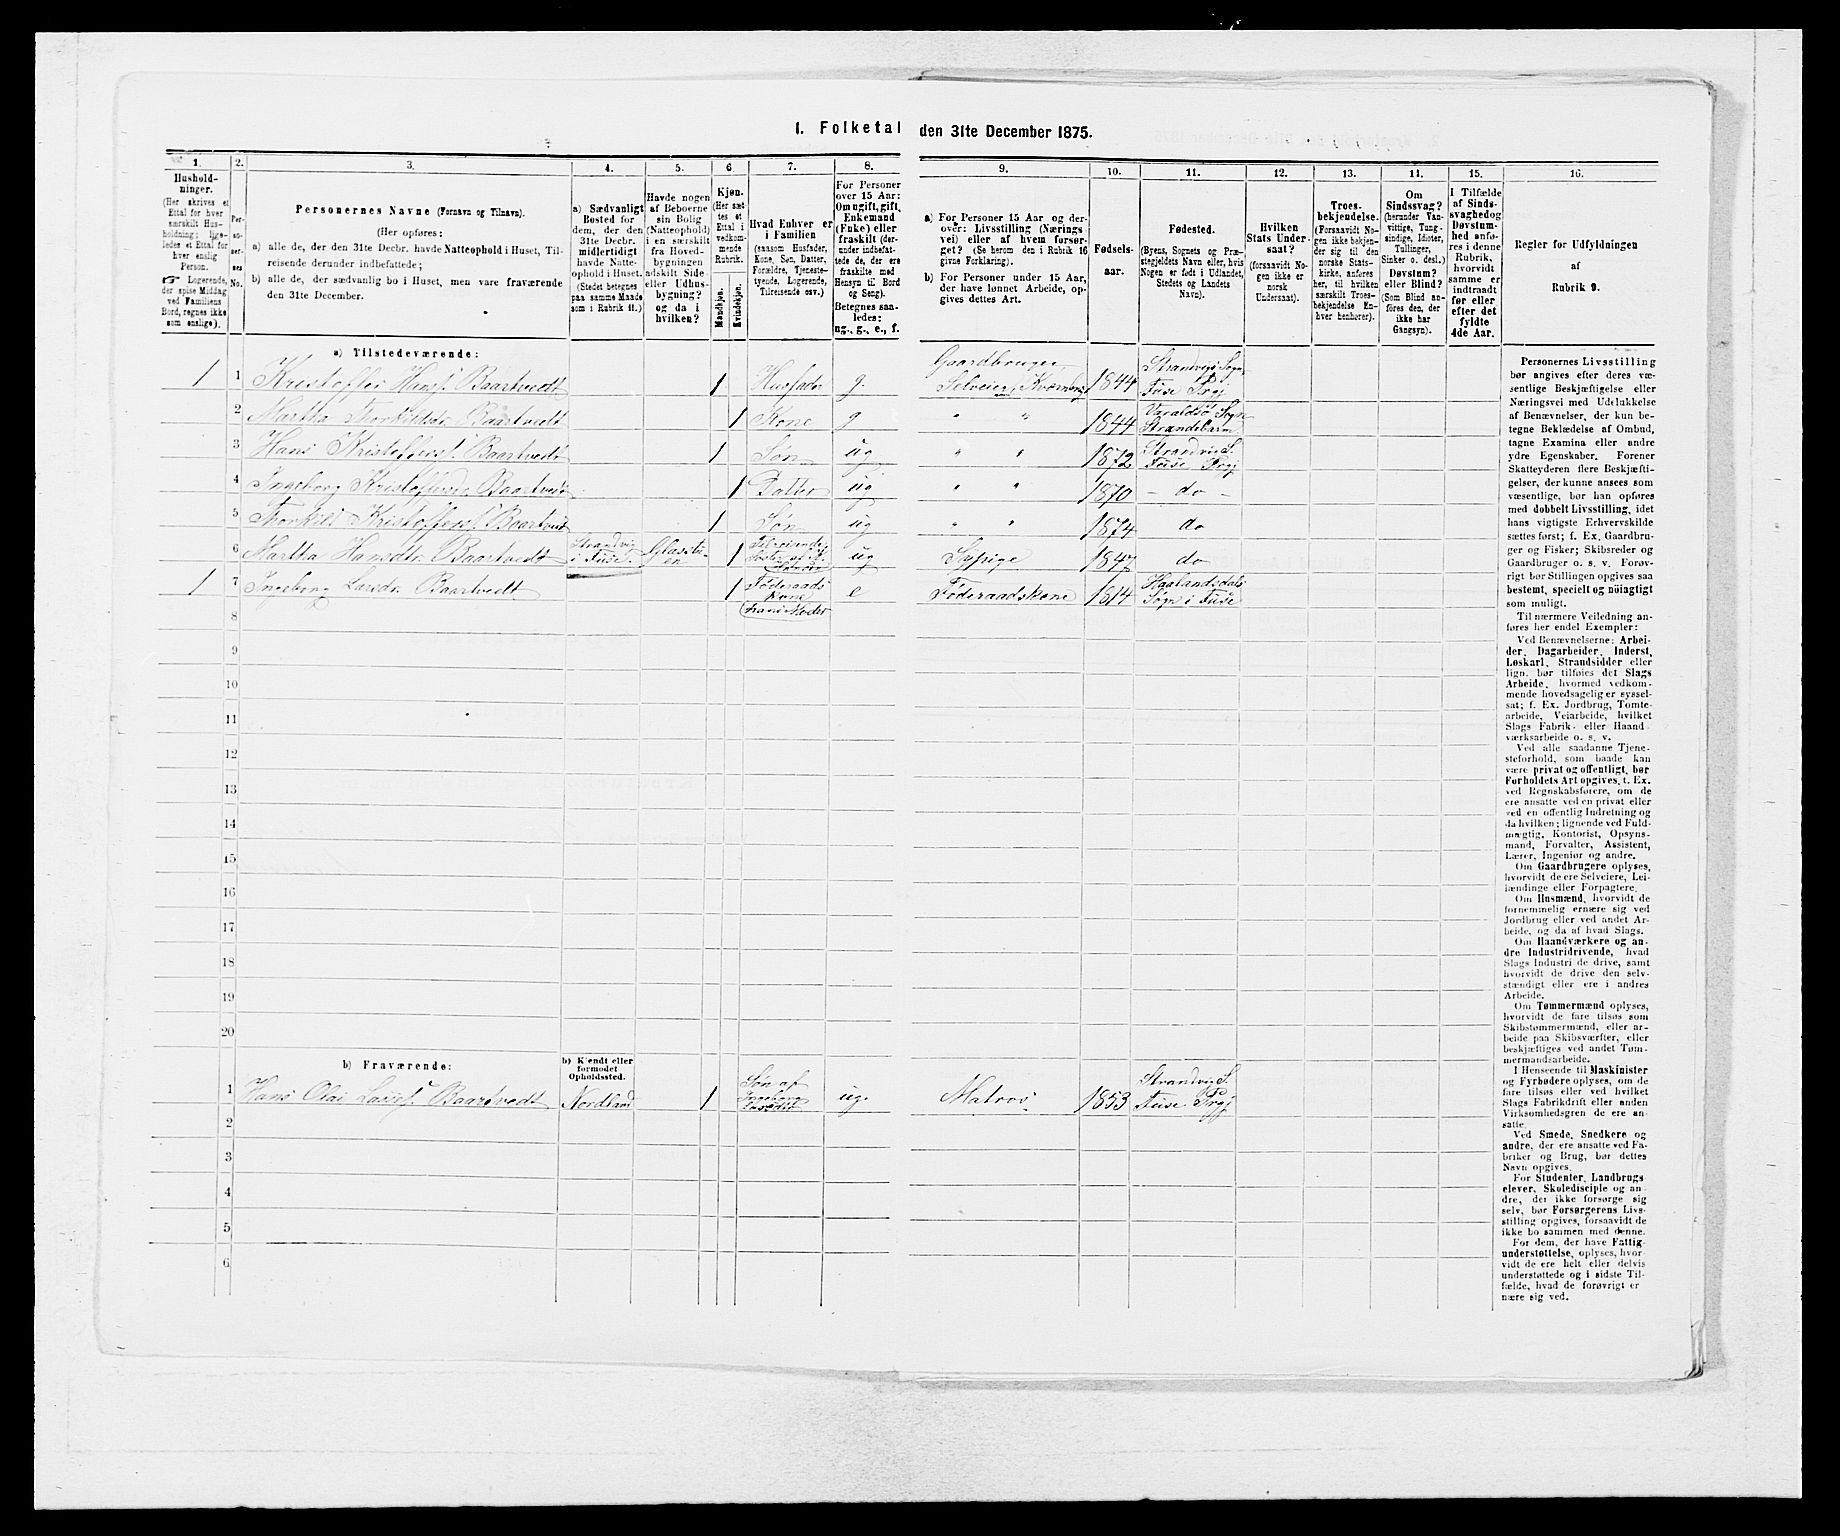 1. Folketal den 31te December 1875.
1.
Hushold-
ninger.
(Her skrives et
Ettal for hver
særskilt Hus-
holdning; lige-
ledes et Ettal for
hver enslig
Person.
☞ Logerende,
der spise Middag
ved Familiens
Bord, regnes ikke
som enslige).
2.
Per-
so-
ner-
nes
No.
3.
Personernes Navne (Fornavn og Tilnavn).
(Her opføres:
a) alle de, der den 31te Decbr. havde Natteophold i Huset, Til-
reisende derunder indbefattede;
b) alle de, der sædvanlig bo i Huset, men vare fraværende
den 31te December.
4.
a) Sædvanligt
Bosted for
dem, der den
31te Decbr.
midlertidigt
havde Natte-
ophold i Huset.
(Stedet betegnes
paa samme Maade
som i Rubrik 11.)
5.
Havde nogen
af Beboerne
sin Bolig
(Natteophold)
i en særskilt
fra Hoved-
bygningen
adskilt Side-
eller Udhus-
bygning?
og da i
hvilken?
6.
Kjøn.
(Her sæt-
tes et
Ettal i
vedkom-
mende
Rubrik.
Mandkjøn.
Kvindekjøn.
7.
Hvad Enhver er
i Familien
(saasom Husfader,
Kone, Søn, Datter,
Forældre, Tjeneste-
tyende, Logerende,
Tilreisende osv.)
8.
For Personer
over 15 Aar:
Om ugift, gift,
Enkemand
(Enke) eller
fraskilt (der-
under indbefat-
tede de, der ere
fraskilte med
Hensyn til Bord
og Seng).
Betegnes saa-
ledes:
ug., g., e., f.
9.
a) For Personer 15 Aar og der-
over: Livsstilling (Nærings-
vei) eller af hvem forsør-
get? (Se herom den i Rubrik 16
givne Forklaring).
b) For Personer under 15 Aar,
der have lønnet Arbeide, op-
gives dettes Art.
10.
Fødsels-
aar.
11.
Fødested.
(Byens, Sognets og Præ-
stegjeldets Navn eller, hvis
Nogen er født i Udlandet,
Stedets og Landets
Navn).
12.
Hvilken
Stats Under-
saat?
(forsaavidt No-
gen ikke er
norsk
Undersaat).
13.
Troes-
bekjendelse.
(Forsaavidt No-
gen ikke bekjen-
der sig til den
norske Stats-
kirke, anføres
her, til hvilken
særskilt Troes-
bekjendelse En-
hver henhører).
14.
Om
Sindssvag?
(herunder Van-
vittige, Tung-
sindige, Idioter,
Tullinger,
Sinker o. desl.)
Døvstum?
eller Blind?
(Som Blind an-
føres den, der
ikke har
Gangsyn).
15.
I Tilfælde
af Sinds-
svaghed og
Døvstum-
hed anfø-
res i denne
Rubrik,
hvorvidt
samme er
indtraadt
før eller
efter det
fyldte
4de Aar.
16.
Regler for Udfyldningen
af
Rubrik 9.
a) Tilstedeværende:
1 1 Kristoffer Hanss. Baartvedt 1 Husfader g. Gaardbruger, Selveier, Kværnbrug 1844 Strandvigs Sogn, Fuse Prgj
2 Martha Thorkildsdr. Baartvedt 1 Kone g " " 1844 Varaldsø Sogn Strandebarm
3 Hans Kristoffers. Baartvedt 1 Søn ug " " 1872 Strandvig S. Fuse Prgj
4 Ingeborg Kristoffersdr. Baartvedt 1 Datter ug " " 1870 - do -
5 Thorkild Kristoffers. Baartvedt 1 Søn ug " " 1874 do
6 Martha Hansdtr. Baartvedt Strandvig i Fuse. 1 Tilreisende Søster af ug 1847 do
1 7 Ingeborg Larsdr. Baartvedt 1 Føderaads Kone (hans Moder e Føderaadskone 1814 Haalandsdals Sogn i Fuse
8
9
10
11
12
13
14
15
16
17
18
19
20
b) Fraværende:
b) Kjendt eller
formodet
Opholdssted.
1 Hans Olai Lasses. Baartvedt Nordland 1 Søn af Ingeborg Larsdtr ug. Matros 1853 Strandvig S. Fuse Prgj
2
3
4
5
6
Personernes Livsstilling
bør angives efter deres væ-
sentlige Beskjæftigelse eller
Næringsvei med Udelukkelse
af Benævnelser, der kun be-
tegne Beklædelse af Ombud,
tagne Examina eller andre
ydre Egenskaber. Forener
Skatteyderen flere Beskjæfti-
gelser, der kunne ansees som
væsentlige, bør han opføres
med dobbelt Livsstilling, idet
hans vigtigste Erhvervskilde
sættes først; f. Ex. Gaardbru-
ger og Fisker; Skibsreder og
Gaardbruger o. s. v. Forøv-
rigt bør Stillingen opgives saa
bestemt, specielt og nöiagtigt
som muligt.
Til nærmere Veiledning an-
føres her endel Exempler:
Ved Benævnelserne: Arbei-
der, Dagarbeider, Inderst,
Løskarl, Strandsidder eller
lign. bør tilføies det Slags
Arbeide, hvormed vedkom-
mende hovedsagelig er syssel-
sat; f. Ex. Jordbrug, Tomte-
arbeide, Veiarbeide, hvilket
Slags Fabrik- eller Haand-
værksarbeide o. s. v.
Ved alle saadanne Tjene-
steforhold, som baade kan
være privat og offentligt, bør
Forholdets Art opgives, t. Ex.
ved Regnskabsførere, om de
ere ansatte ved en privat eller
ved en offentlig Indretning og
da hvilken; lignende ved Fuld-
mægtig, Kontorist, Opsyns-
mand, Forvalter, Assistent,
Lærer, Ingeniør og andre.
Om Gaardbrugere oplyses,
hvorvidt de ere Selveiere, Lei-
lændinge eller Forpagtere.
Om Husmænd, hvorvidt de
fornemmelig ernære sig ved
Jordbrug eller ved andet Ar-
beide, og da af hvad Slags.
Om Haandværkere og an-
dre Industridrivende, hvad
Slags Industri de drive, samt
hvorvidt de drive den selv-
stændigt eller ere i andres
Arbeide.
Om Tømmermænd oplyses,
hvorvidt de fare tilsøs som
Skibstømmermænd, eller ar-
beide paa Skibsværfter, eller
beskjæftiges ved andet Tøm-
mermandsarbeide.
I Henseende til Maskinister
og Fyrbødere oplyses, om de
fare tilsøs eller ved hvilket
Slags Fabrikdrift eller anden
Virksomhedsgren de ere an-
satte.
Ved Smede, Snedkere og
andre, der ere ansatte ved Fa-
briker og Brug, bør dettes
Navn opgives.
For Studenter, Landbrugs-
elever, Skoledisciple og an-
dre, der ikke forsørge sig
selv, bør Forsørgerens Livs-
stilling opgives, forsaavidt de
ikke bo sammen med denne.
For dem, der have Fattig-
understøttelse, oplyses, hvor-
vidt de ere helt eller delvis
understøttede og i sidste Til-
fælde, hvad de forøvrigt er-
nære sig ved.